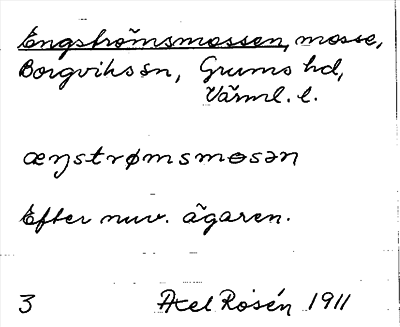 Engströmsmossen, mosse,
Borgviks sn, Grums hd,
Värml. l.
æŋstrømsmɵsən
Efter nuv. ägaren.
3 Axel Rosén 1911